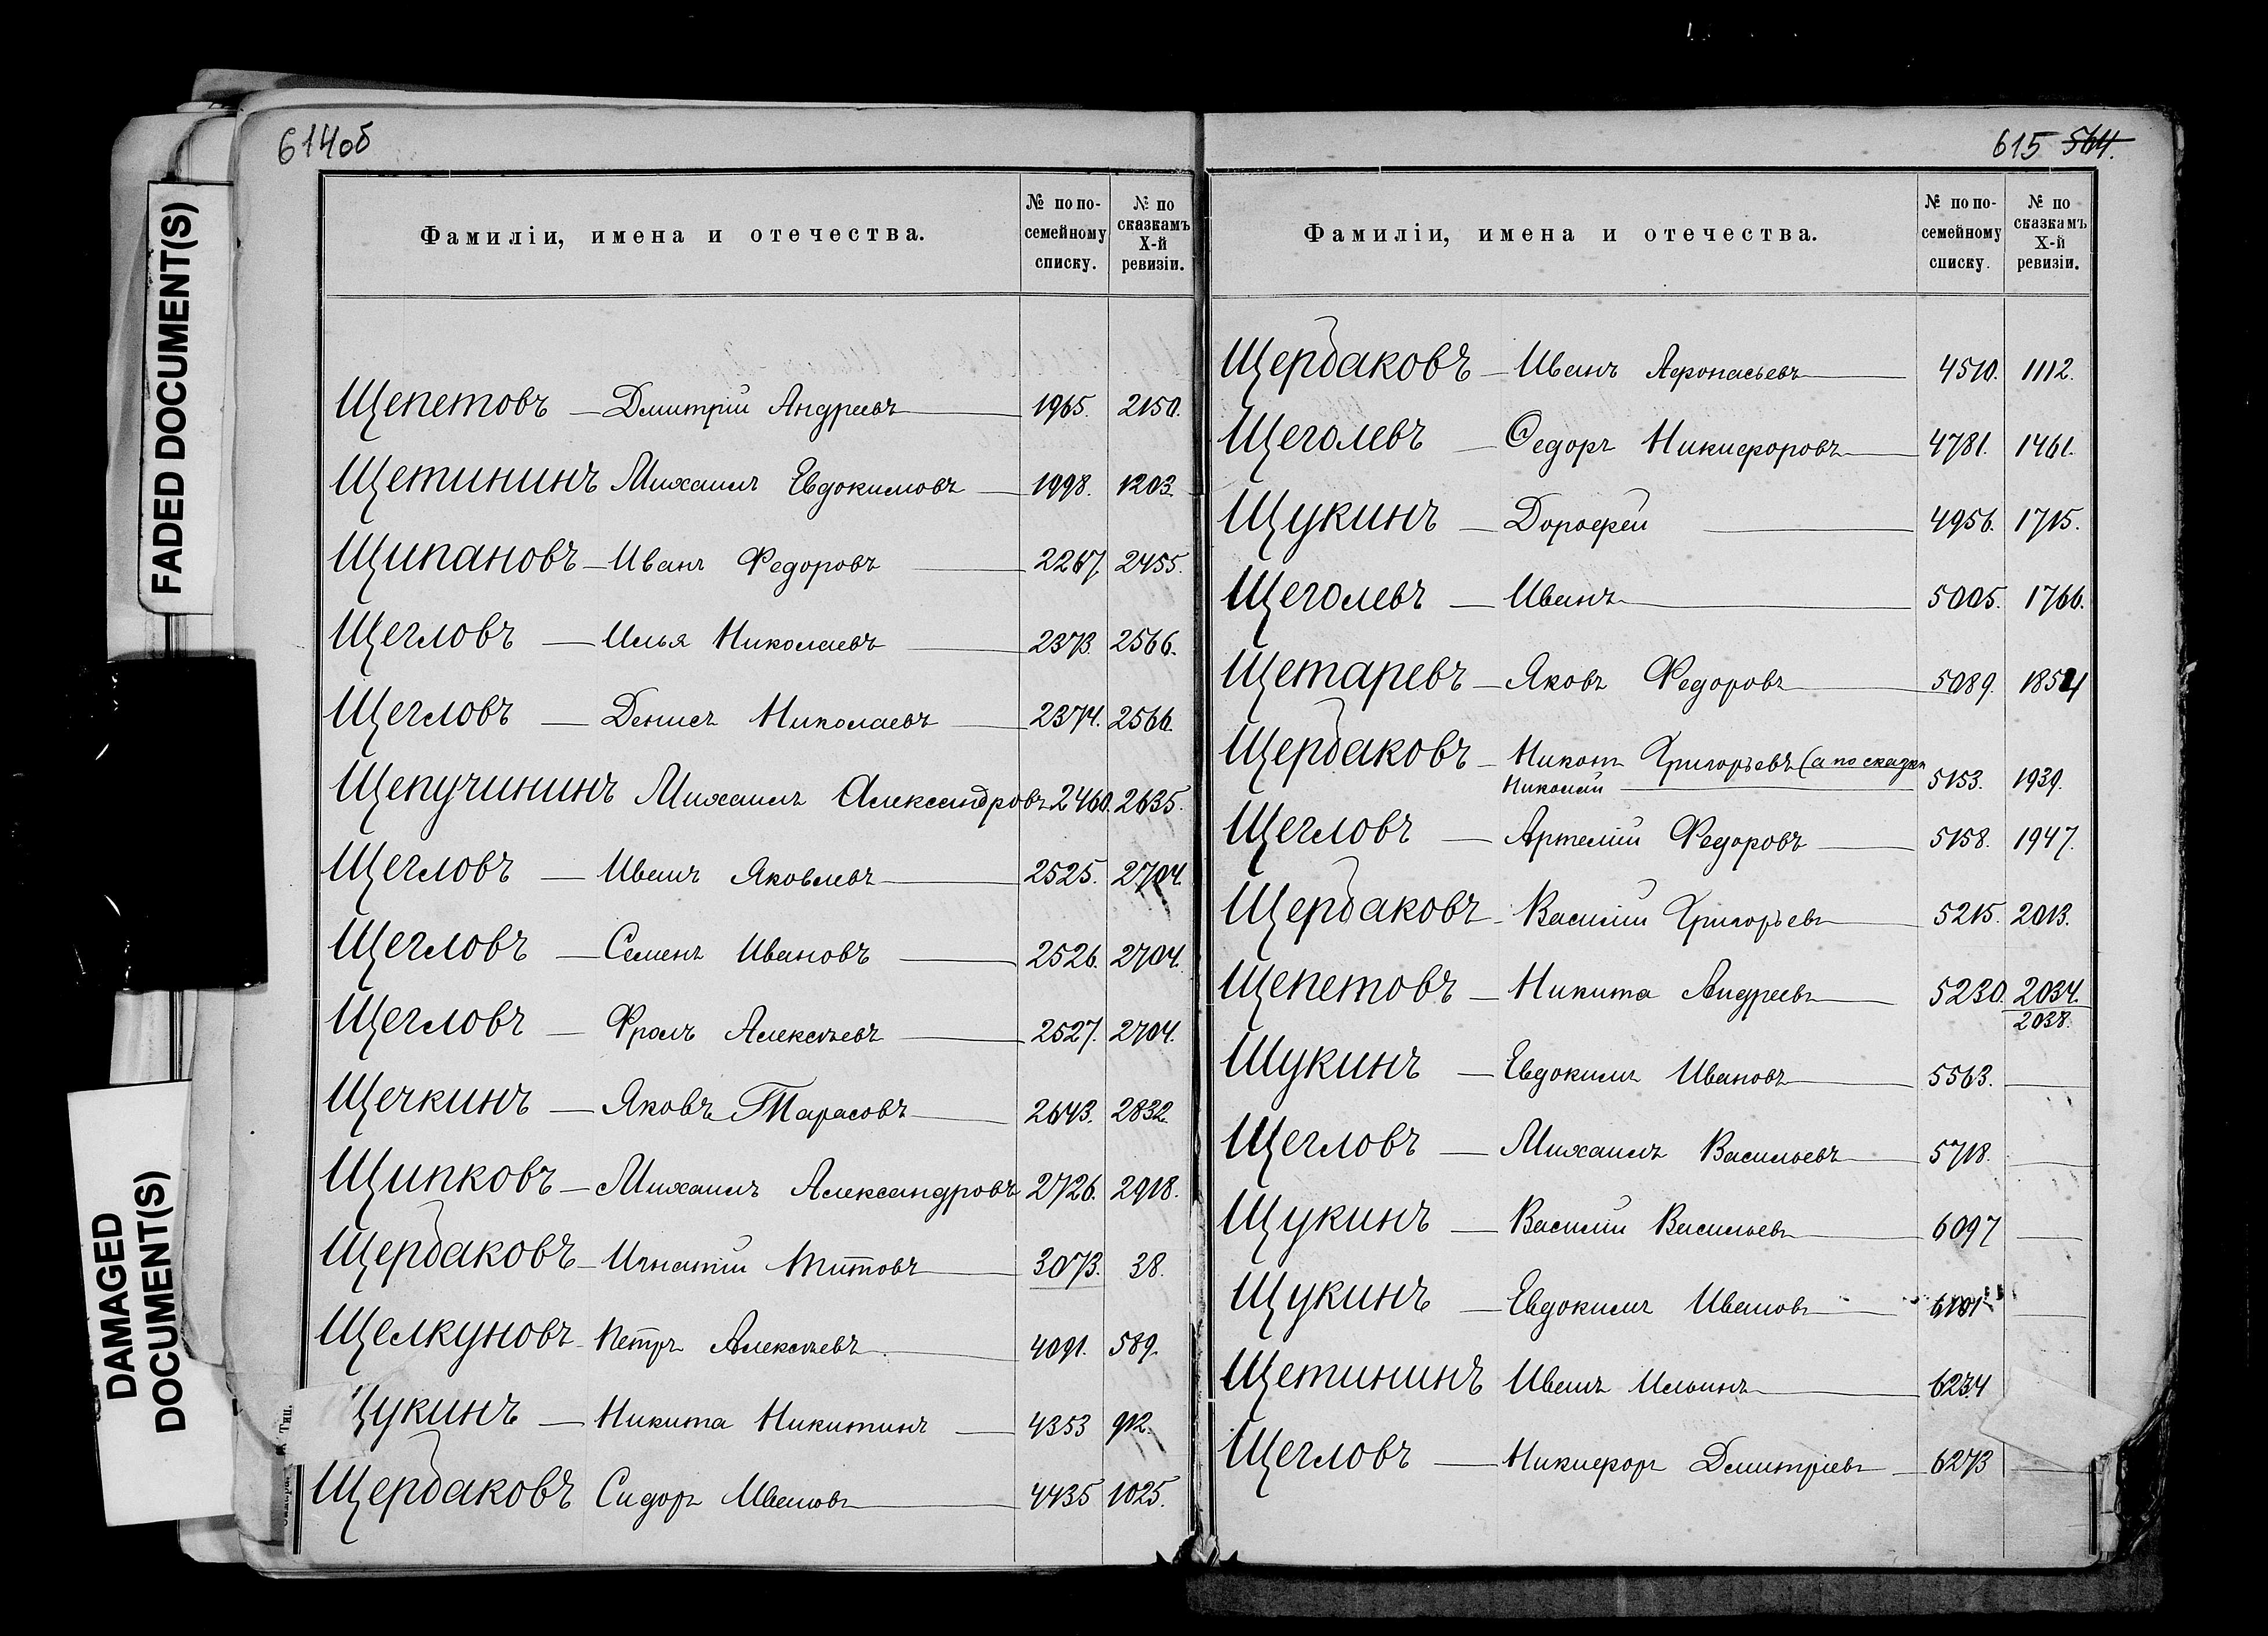 FADED DOCUMENT(S)
DAMAGED
DOCUMENT(S)
614об
Фамиліи, имена и отечества.
№ по по-
семейному
списку.
№ по
сказкамъ
X-й
ревизіи.
Щепетовъ — Дмитрій Андреевъ — 1965. 2150.
Щетининъ Михаилъ Евдокимовъ — 1998. 1203.
Щипановъ — Иванъ Федоровъ — 2267. 2455.
Щегловъ — Илья Николаевъ — 2373. 2566.
Щегловъ — Денисъ Николаевъ — 2374. 2566.
Щепучининъ Михаилъ Александровъ 2460. 2635.
Щегловъ — Иванъ Яковлевъ — 2525. 2704.
Щегловъ — Семенъ Ивановъ — 2526. 2704.
Щегловъ — Фролъ Алексѣевъ — 2527. 2704.
Щечкинъ — Яковъ Тарасовъ — 2643. 2832.
Щипковъ — Михаилъ Александровъ 2726. 2918.
Щербаковъ — Игнатій Титовъ — 3073. 38.
Щелкуновъ — Петръ Алексѣевъ — 4091. 589.
Щукинъ — Никита Никитинъ — 4353 912.
Щербаковъ Сидоръ Ивановъ — 4435 1025.
615 564.
Фамиліи, имена и отечества.
№ по по-
семейному
списку.
№ по
сказкамъ
X-й
ревизіи.
Щербаковъ — Иванъ Афонасьевъ — 4510. 1112.
Щеголевъ — Ѳедоръ Никифоровъ — 4781. 1461.
Щукинъ — Дорофей — 4956. 1715.
Щеголевъ — Иванъ — 5005. 1766.
Щетаревъ — Яковъ Федоровъ — 5089. 1854
Щербаковъ — Никонъ Григорьевъ (а по сказкѣ
Николай — 5153. 1939.
Щегловъ — Артемій Федоровъ — 5158. 1947.
Щербаковъ — Василій Григорьевъ — 5215. 2013.
Щепетовъ — Никита Андреевъ — 5230. 2034.
2038.
Щукинъ — Евдокимъ Ивановъ — 5563. —
Щегловъ — Михаилъ Васильевъ — 5718. —
Щукинъ — Василій Васильевъ — 6097 —
Щукинъ — Евдокимъ Ивановъ — 6101 —
Щетининъ Иванъ Ильинъ — 6234
Щегловъ — Никифоръ Дмитріевъ — 6273 —